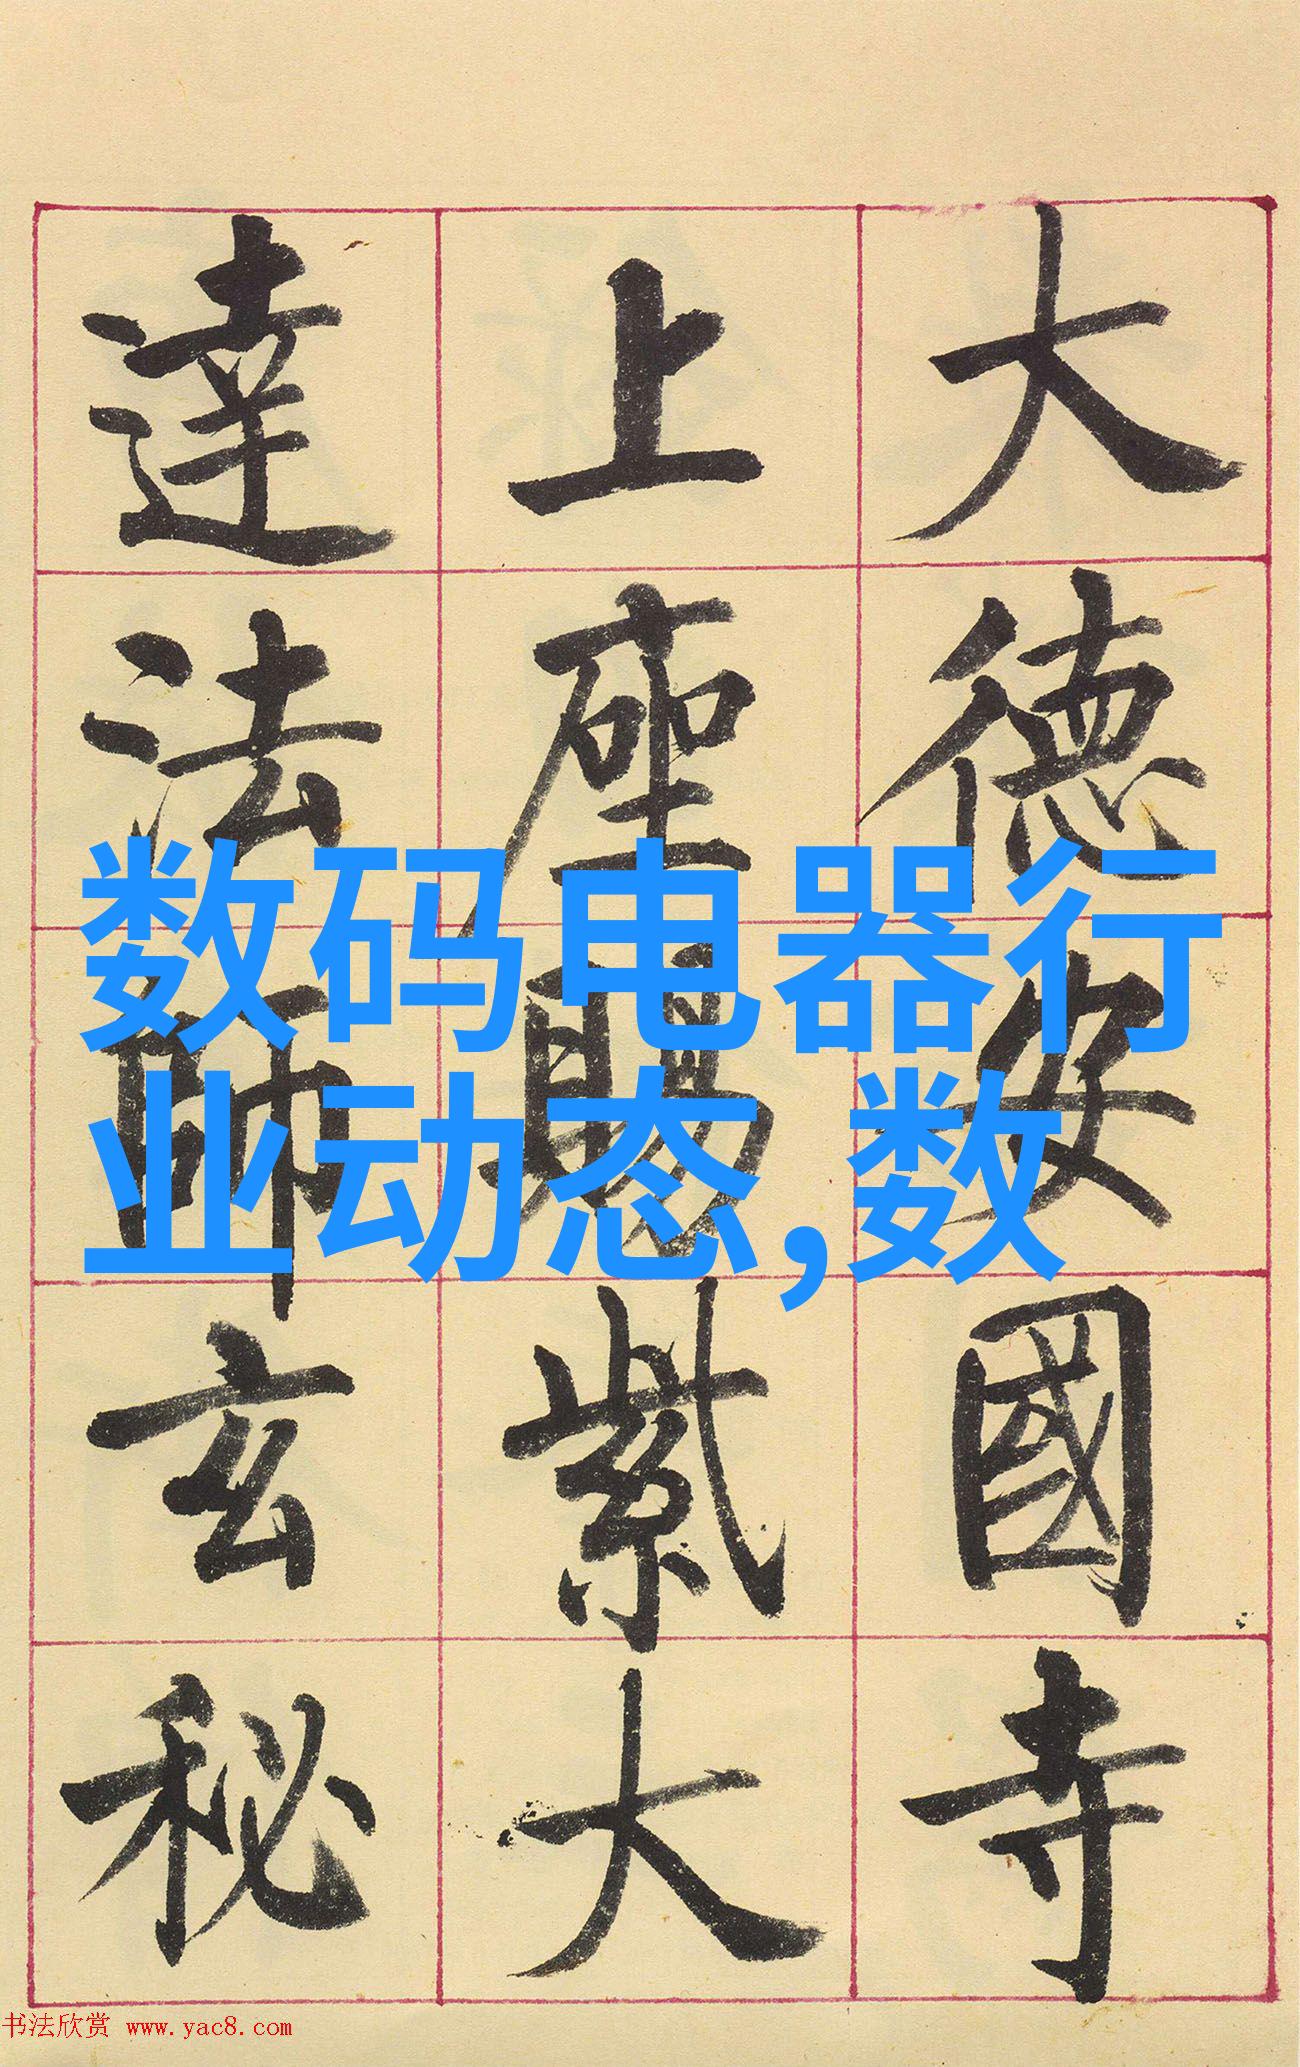 大德安國寺
上座賜紫大
達法師玄秘
数码电器行
业动态,数
书法欣赏 www.yac8.com